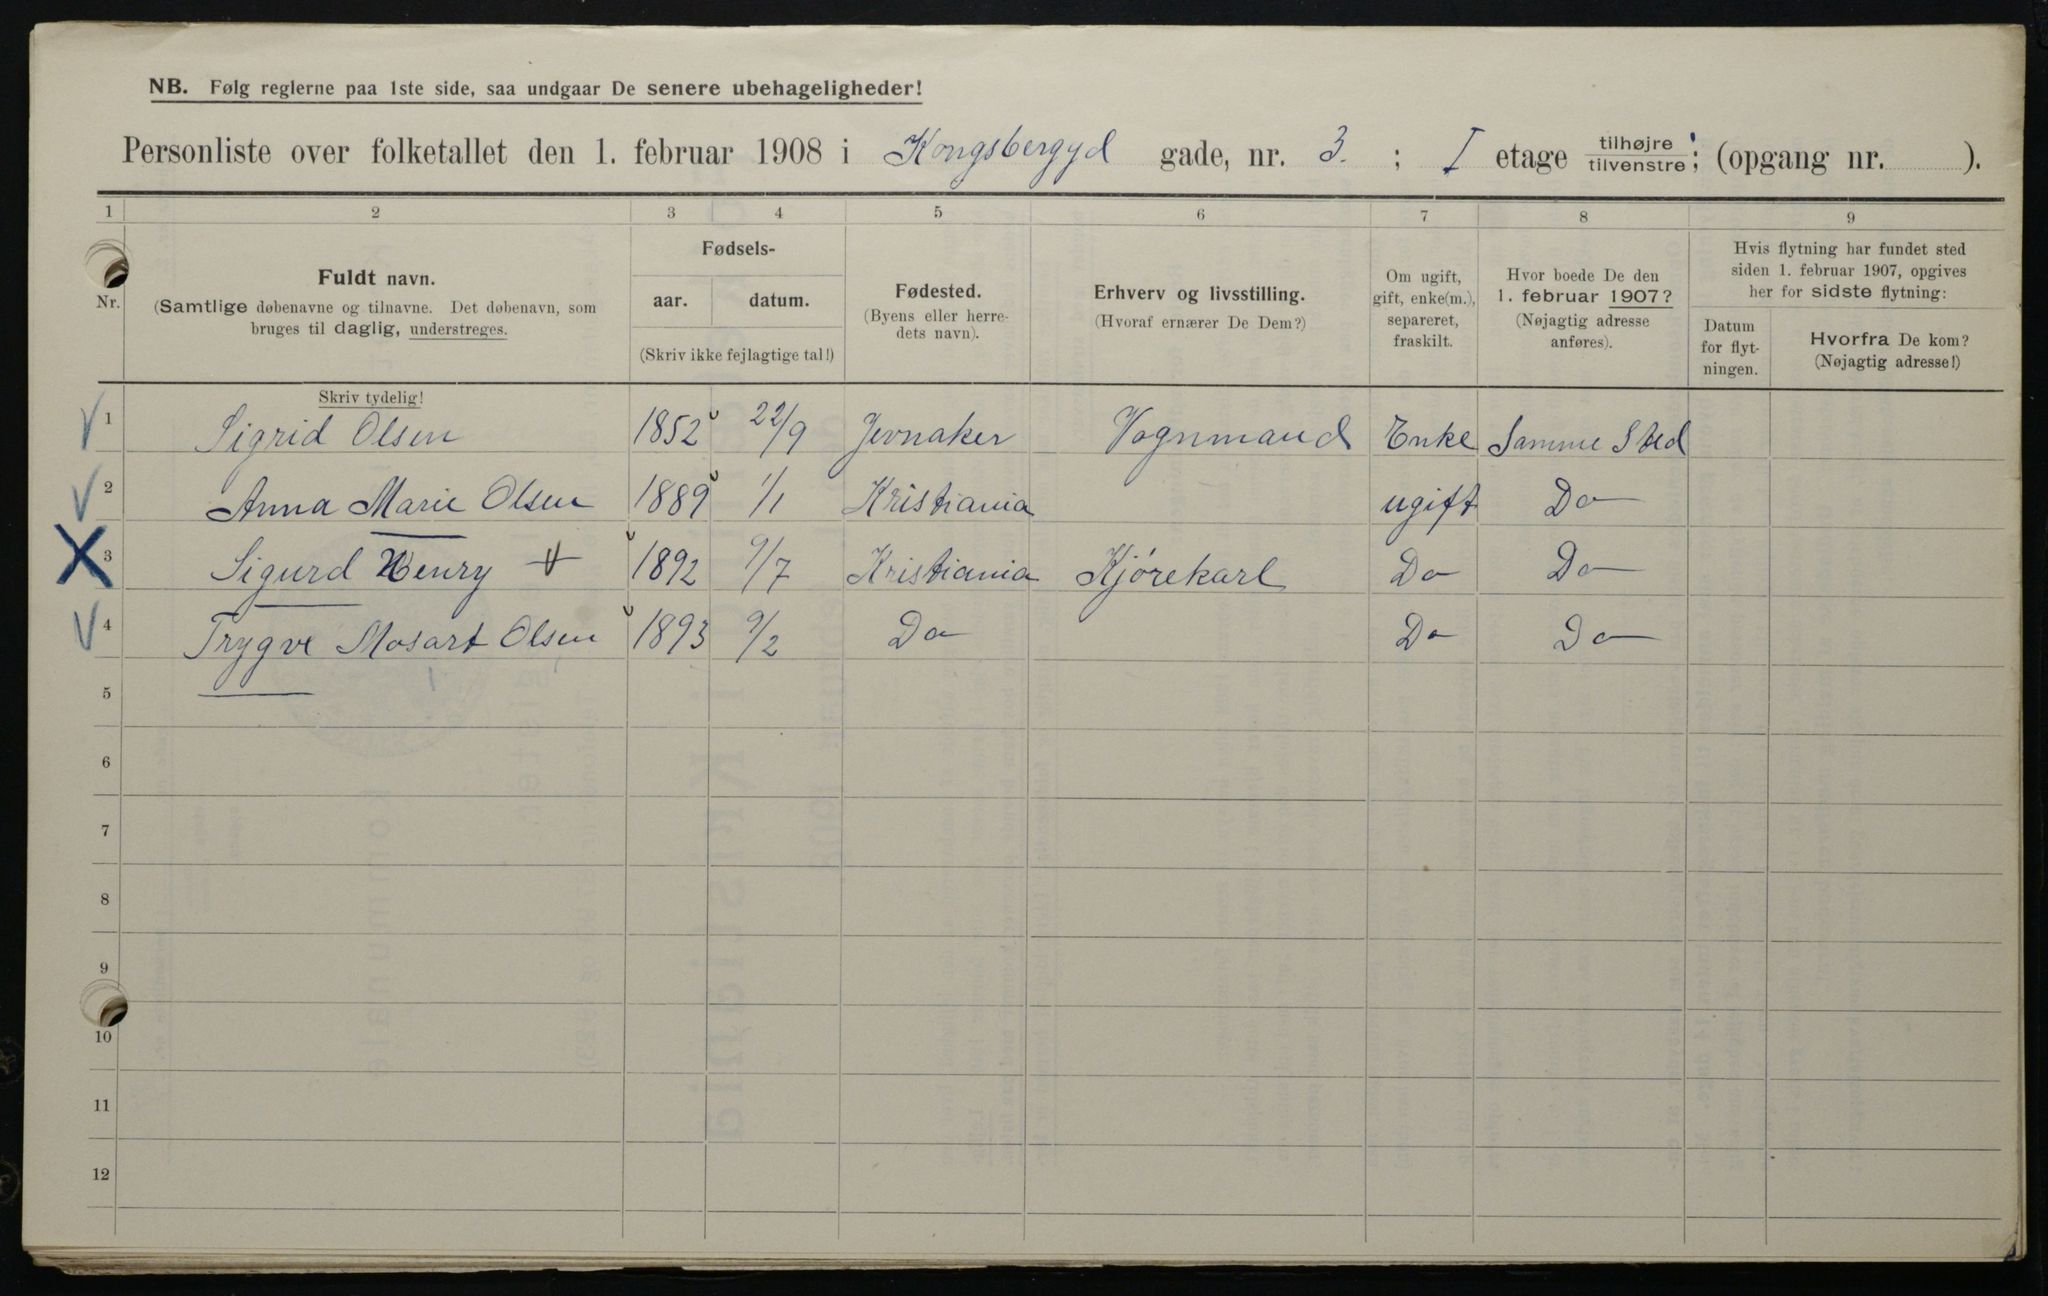 NB. Følg reglerne paa 1ste side, saa undgaar De senere ubehageligheder!
Personliste over folketallet den 1. februar 1908 i Kongsberggd gade, nr. 3. ; I etage tilhøjre/tilvenstre; (opgang nr. ).
1 2 3 4 5 6 7 8 9
Nr.
Fuldt navn.
(Samtlige døbenavne og tilnavne. Det døbenavn, som
bruges til daglig, understreges.
Skriv tydelig!
Fødsels-
aar. datum.
(Skriv ikke fejlagtige tal!)
Fødested.
(Byens eller herre-
dets navn).
Erhverv og livsstilling.
(Hvoraf ernærer De Dem?)
Om ugift,
gift, enke(m.),
separeret,
fraskilt.
Hvor boede De den
1. februar 1907?
(Nøjagtig adresse
anføres).
Hvis flytning har fundet sted
siden 1. februar 1907, opgives
her for sidste flytning:
Datum
for flyt-
ningen.
Hvorfra De kom?
(Nøjagtig adresse!)
1 Sigrid Olsen 1852 22/9 Jevnaker Vognmand Enke Samme Sted
2 Anna Marie Olsen 1889 1/1 Kristiania ugift Do
3 Sigurd Henry 1892 9/7 Kristiania Kjørekarl Do Do
4 Trygve Mosart Olsen 1893 9/2 Do Do Do
5
6
7
8
9
10
11
12